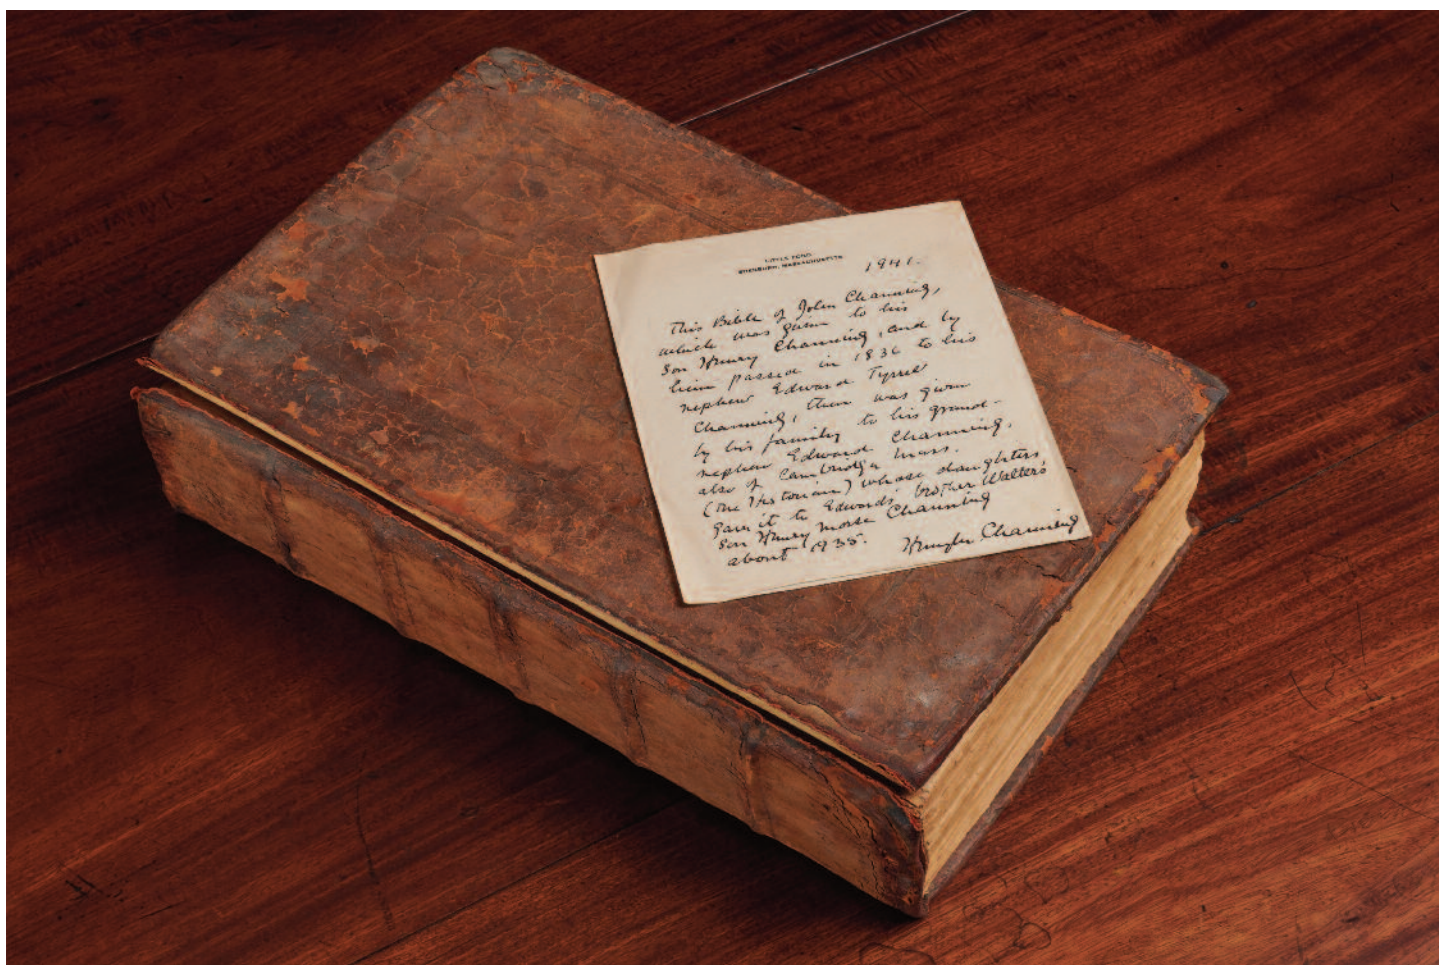 LITTLE POND
1941.
This Bible of John Channing,
which was given to his
son Henry Channing, and by
him passed in 1836 to his
nephew Edward Tyrrel
Channing, then was given
by his family to his grand-
nephew Edward Channing,
also of Cambridge Mass.
(the Historian) whose daughters
gave it to Edwards' brother Walter's
son Henry Morse Channing
about 1935.
Channing